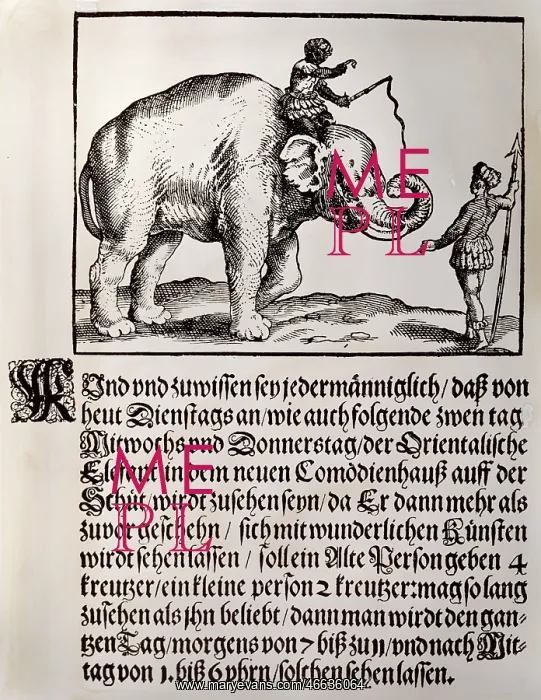 ME
PL
Kund vnd zuwissen sey jedermänniglich / daß von
heut Dienstags an / wie auch folgende zwen tag
Mitwochs vnd Donnerstag / der Orientalische
in dem neuen Comödienhauß auff der
Schüt / wirdt zusehen seyn / da Er dann mehr als
zuvor / sich mit wunderlichen Künsten
wirdt sehen lassen / soll ein Alte Person geben 4
kreutzer / ein kleine person 2 kreutzer: mag so lang
zusehen als jhn beliebt / dann man wirdt den gan-
tzen Tag / morgens von 7 biß zu 11 / vnd nach Mit-
tag von 1. biß 6 vhrn / solchen sehen lassen.
ME
PL
www.maryevans.com/46636064